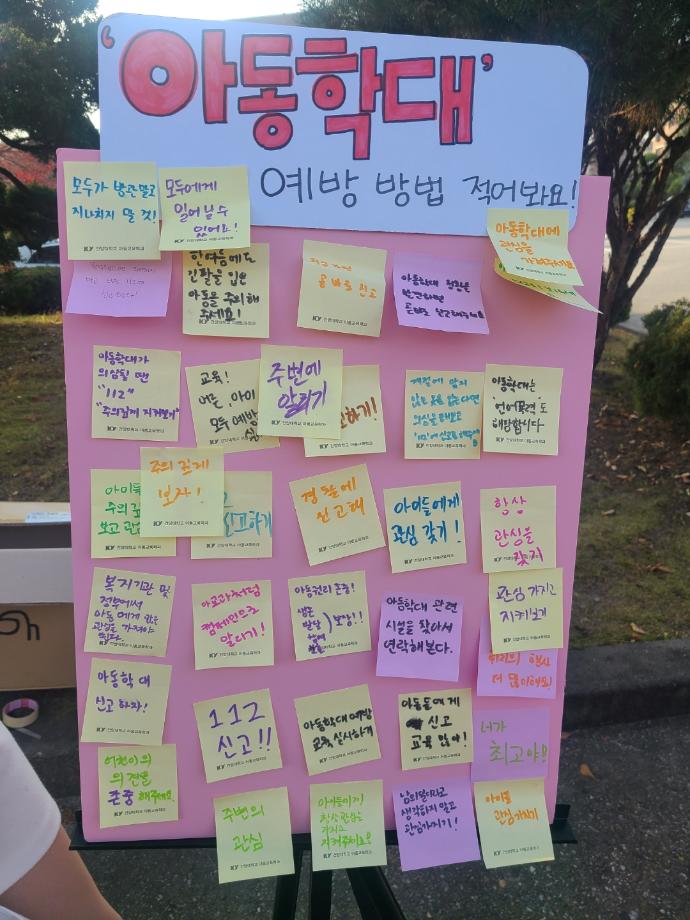 '아동학대'
예방 방법 적어봐요!
모두가 방관 말고
지나치지 말 것!
모두에게
일어날 수
있어요!
아동학대에
관심을
가져주세요
한여름에도
긴팔을 입은
아동을 주의해
주세요!
곧바로 신고
아동학대 정황을
발견하면
곧바로
아동학대가
의심될 땐
"112"
"주의깊게 지켜보기"
교육!
모두 예방
주변에
알리기
하기!
계절에 맞지
않는 옷을
의심을 해보고
아동학대는
'언어폭력'도
해당합니다.
아이
주의 깊
보고 관
주의 깊게
보자!
신고하기
경찰에
신고해
아이들에게
관심 갖기!
항상
관심을
갖지
복지기관 및
정부에서
아동에게 많은
관심을 가져야
된다.
캠페인으로
알리기!
아동권리 존중!
생존
발달
보장!!
아동학대 관련
시설을 찾아서
연락해본다.
관심 가지고
지켜보기
더 많이해요!
아동학대
신고 하자!
112
신고!!
아동학대 예방
교육 실시하기
아동들에게
신고
교육 많이!
너가
최고야!!
어린이의
의견을
존중 해주세요.
주변의
관심
아동에게!
항상 관심을
가지고
지켜주세요
남의 일이라고
생각하지 말고
관심가지기!
아이들
관심 가지기